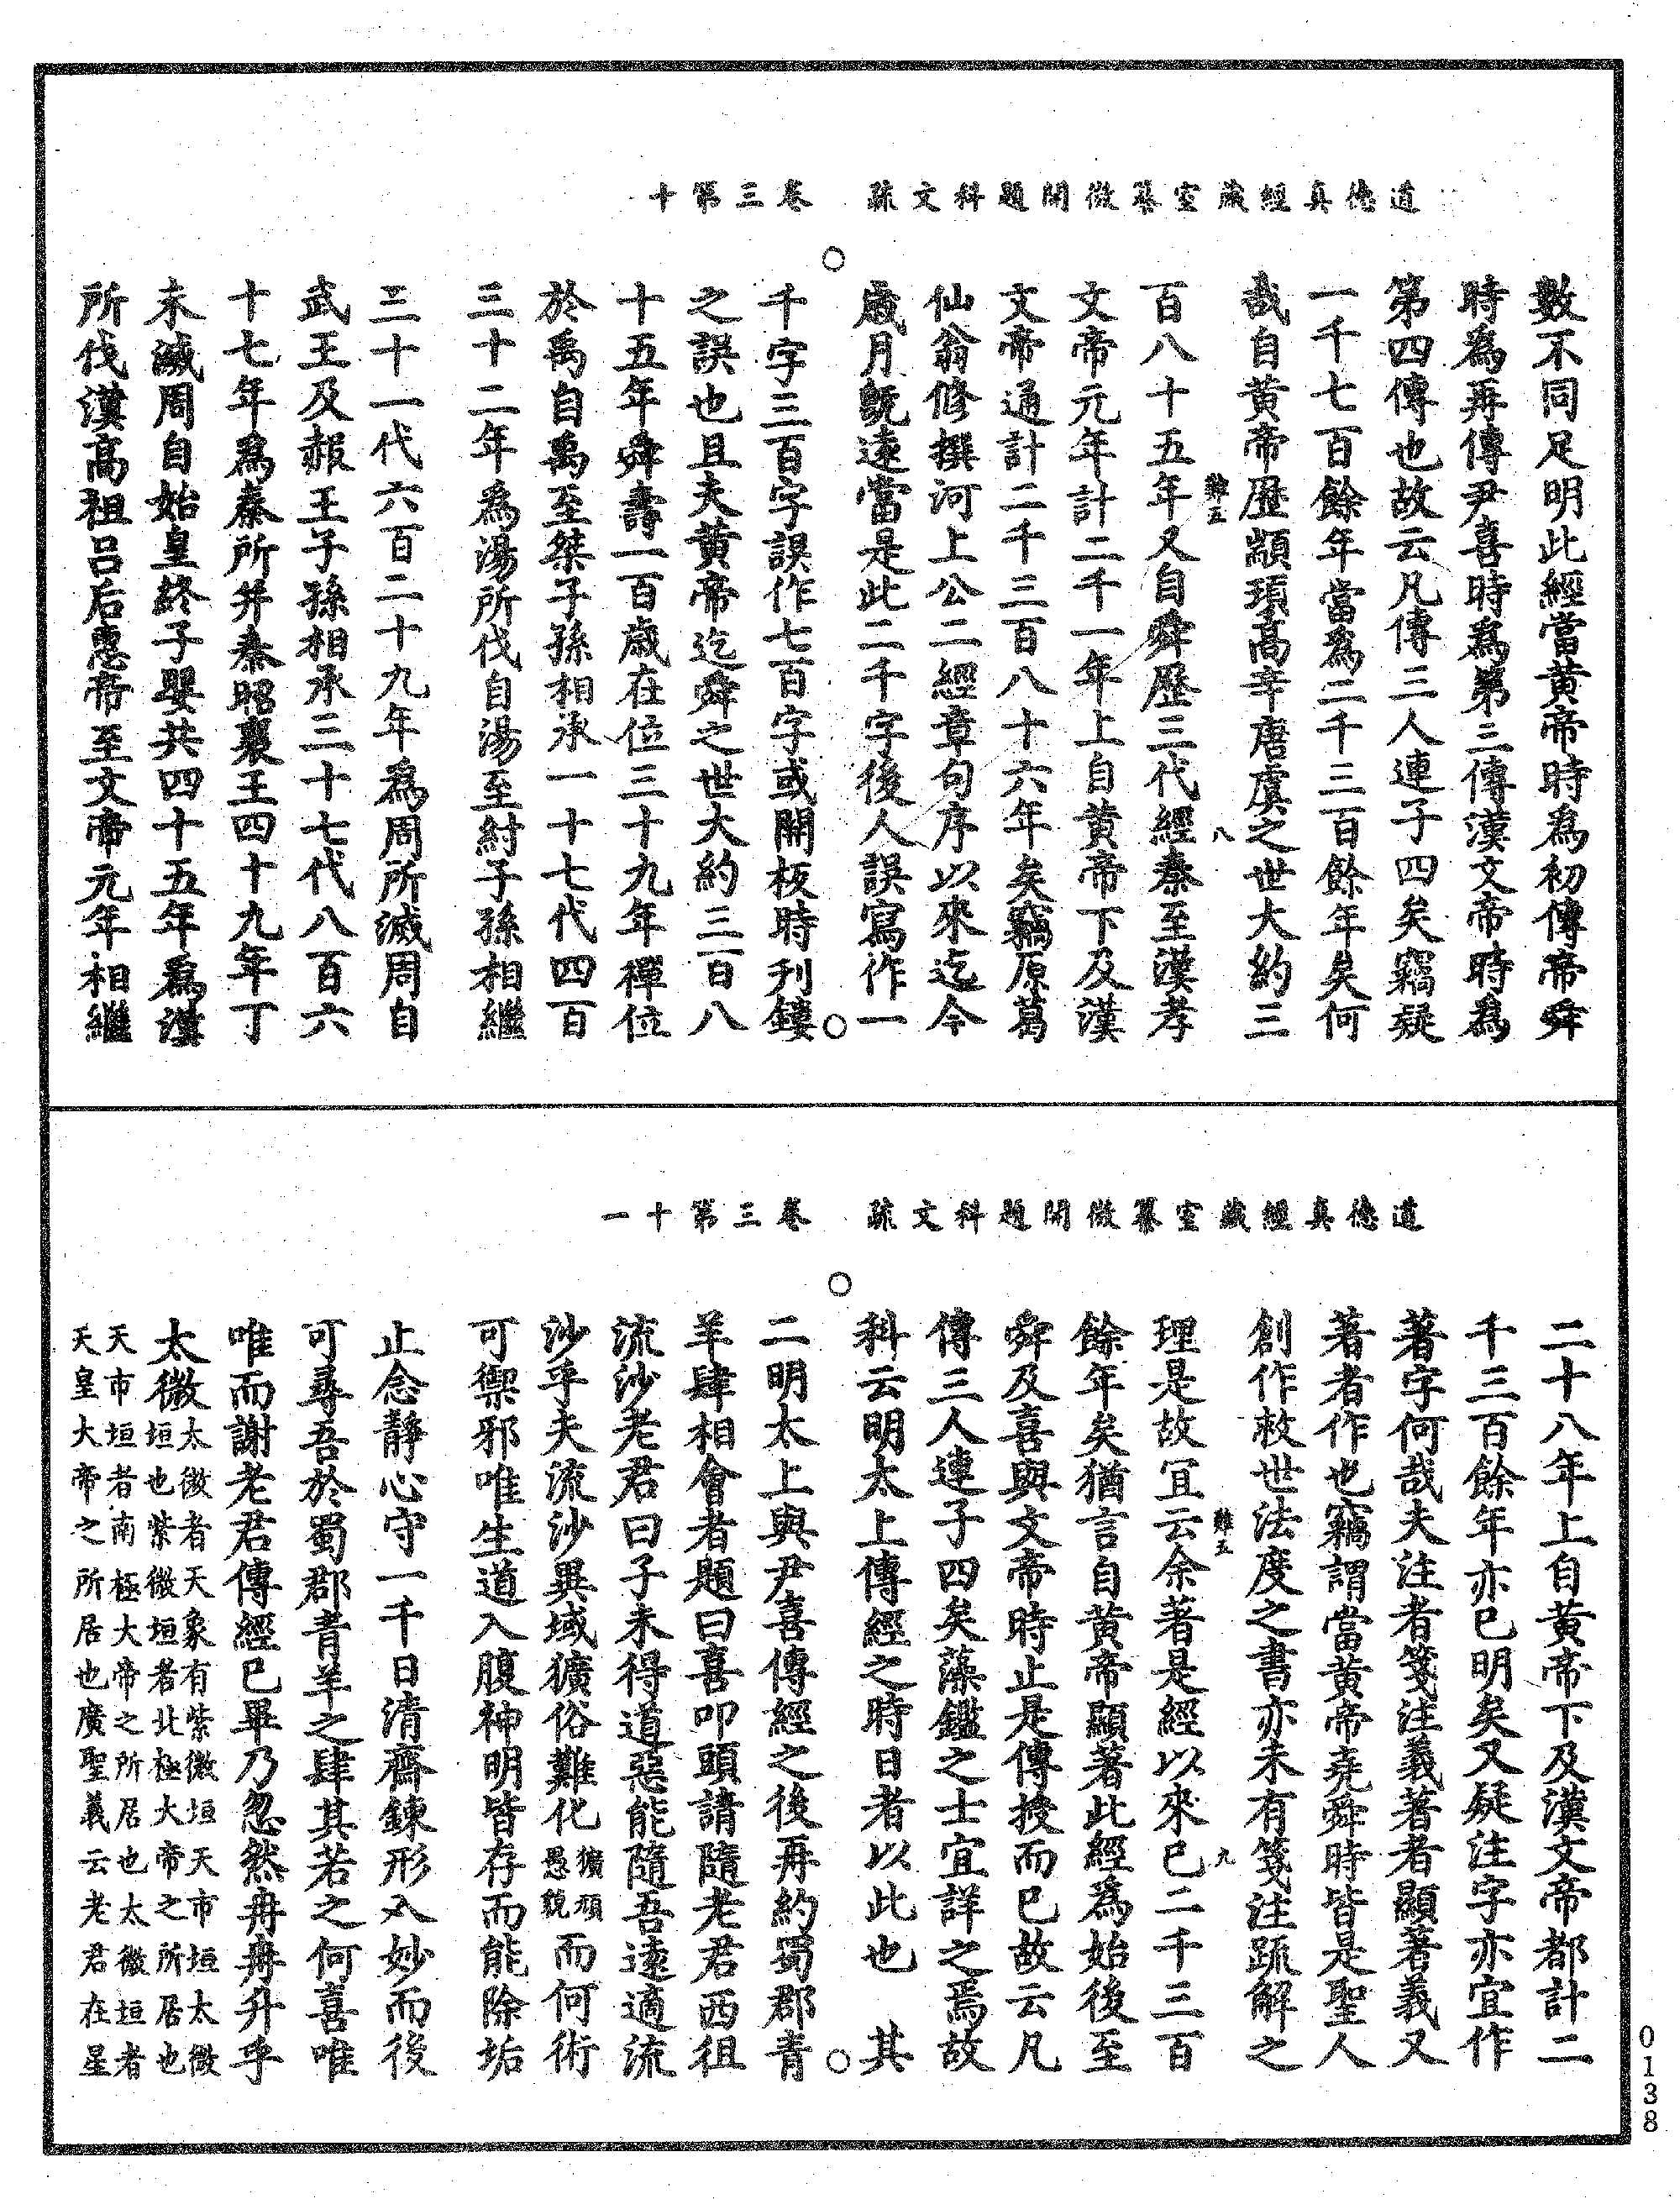 道德眞經藏室纂微開題科文疏　卷三第十
數不同足明此經當黃帝時爲初傳帝舜
時爲再傳尹喜時爲第三傳漢文帝時爲
第四傳也故云凡傳三人連子四矣竊疑
一千七百餘年當爲二千三百餘年矣何
哉自黃帝歷顓頊高辛唐虞之世大約三
難五　八
百八十五年又自舜歷三代經秦至漢孝
文帝元年計二千一年上自黃帝下及漢
文帝通計二千三百八十六年矣竊原葛
仙翁修撰河上公二經章句序以來迄今
歲月旣遠當是此二千字後人誤寫作一
千字三百字誤作七百字或開板時刊鏤
之誤也且夫黃帝迄舜之世大約三百八
十五年舜壽一百歲在位三十九年禪位
於禹自禹至桀子孫相承一十七代四百
三十二年爲湯所伐自湯至紂子孫相繼
三十一代六百二十九年爲周所滅周自
武王及赧王子孫相承三十七代八百六
十七年爲秦所并秦昭襄王四十九年丁
未滅周自始皇終子嬰共四十五年爲漢
所伐漢高祖呂后惠帝至文帝元年相繼
道德眞經藏室纂微開題科文疏　卷三第十一
二十八年上自黃帝下及漢文帝都計二
千三百餘年亦已明矣又疑注字亦宜作
著字何哉夫注者箋注義著者顯著義又
著者作也竊謂當黃帝堯舜時皆是聖人
創作救世法度之書亦未有箋注䟽解之
難五　九
理是故冝云余著是經以來已二千三百
餘年矣猶言自黃帝顯著此經爲始後至
舜及喜與文帝時止是傳授而已故云凡
傳三人連子四矣藻鑑之士宜詳之焉故
科云明太上傳經之時日者以此也　其
二明太上與尹喜傳經之後再約蜀郡青
羊肆相會者題曰喜叩頭請隨老君西徂
流沙老君曰子未得道惡能隨吾遠適流
沙乎夫流沙異域獷俗難化獷頑愚貌而何術
可禦邪唯生道入腹神明皆存而能除垢
止念靜心守一千日清齋鍊形入妙而後
可尋吾於蜀郡青羊之肆其若之何喜唯
唯而謝老君傳經已畢乃忽然冉冉升乎
太微太微者天象有紫微垣天市垣太微垣也紫微垣者北極大帝之所居也
天市垣者南極大帝之所居也太微垣者天皇大帝之所居也廣聖義云老君在星
0138